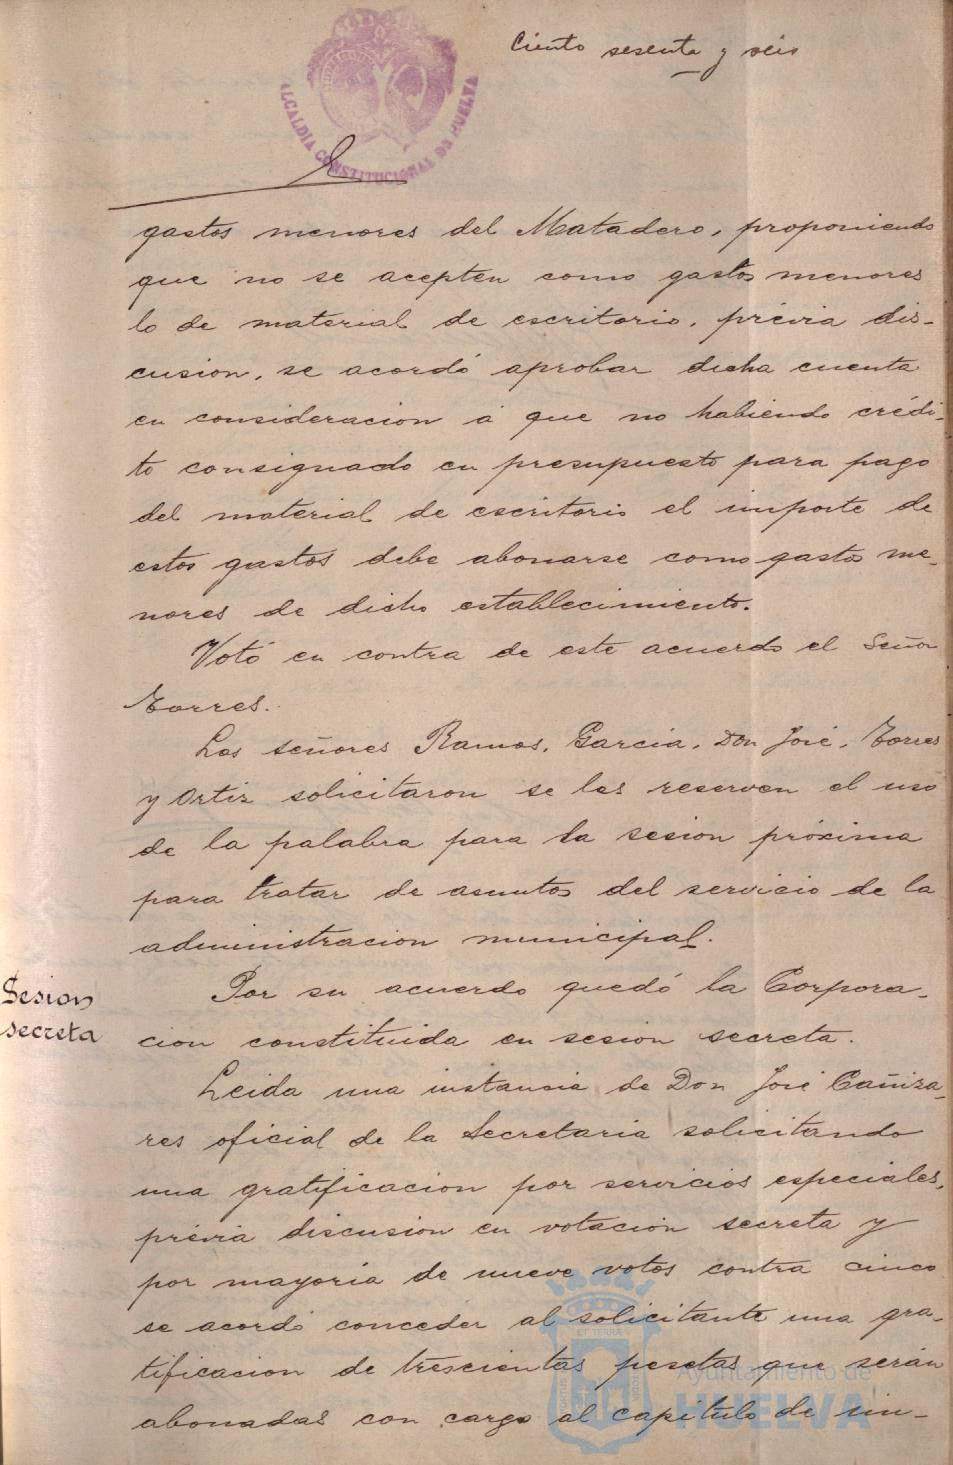 Ciento sesenta y seis
ALCALDIA CONSTITUCIONAL DE HUELVA
gastos menores del Matadero, proponiendo
que no se acepten como gastos menores
lo de material de escritorio, prévia dis-
cusion, se acordó aprobar dicha cuenta
en consideracion á que no habiendo crédi-
to consignado en presupuesto para pago
del material de escritorio el importe de
estos gastos debe abonarse como gastos me-
nores de dicho establecimiento.
Votó en contra de este acuerdo el Señor
Torres.
Los señores Ramos, García, Don José, Torres
y Ortiz solicitaron se les reserven el uso
de la palabra para la sesion próxima
para tratar de asuntos del servicio de la
administracion municipal.
Sesion
secreta
Por su acuerdo quedó la Corpora-
cion constituida en sesion secreta.
Leida una instancia de Don José Cañiza-
res oficial de la Secretaria solicitando
una gratificacion por servicios especiales,
prévia discusion en votación secreta y
por mayoría de nueve votos contra cinco
se acordó conceder al solicitante una gra-
tificacion de trescientas pesetas que serán
abonadas con cargo al capítulo de im-
Ayuntamiento de
HUELVA